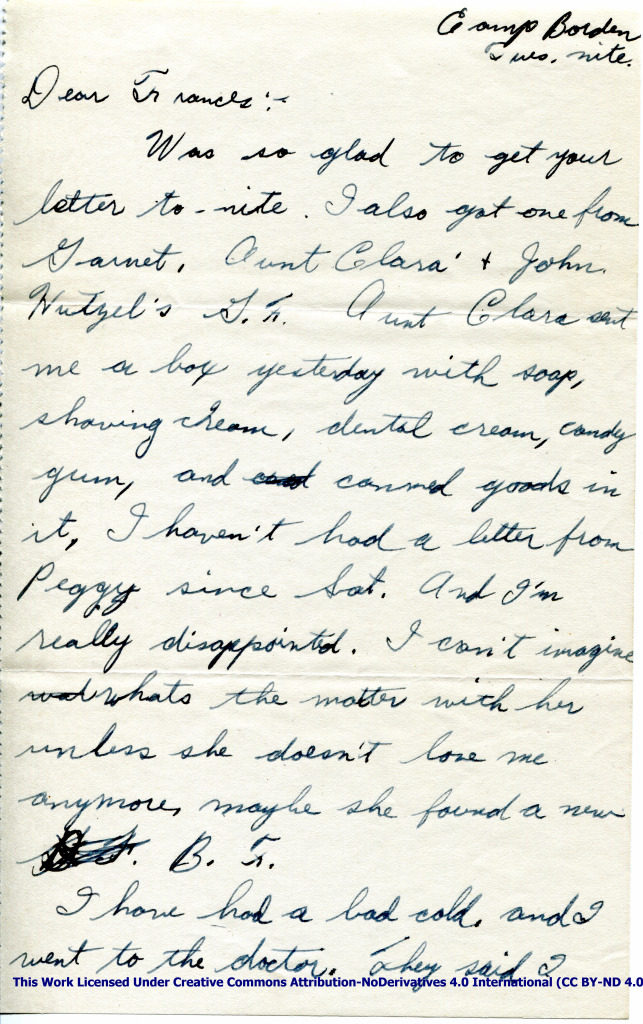 Camp Borden
Tues. nite.
Dear Frances:-
Was so glad to get your
letter to-nite. I also got one from
Garnet, Aunt Clara & John
Hutzel's G.F. Aunt Clara sent
me a box yesterday with soap,
shaving cream, dental cream, candy
gum, and canned goods in
it, I haven't had a letter from
Peggy since Sat. And I'm
really disappointed. I can't imagine
whats the matter with her
unless she doesn't love me
anymore, maybe she found a new
B. F.
I have had a bad cold, and I
went to the doctor. They said I
This Work Licensed Under Creative Commons Attribution-NoDerivatives 4.0 International (CC BY-ND 4.0